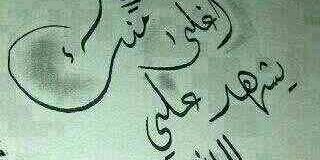 أغلى منك
يشهد علي